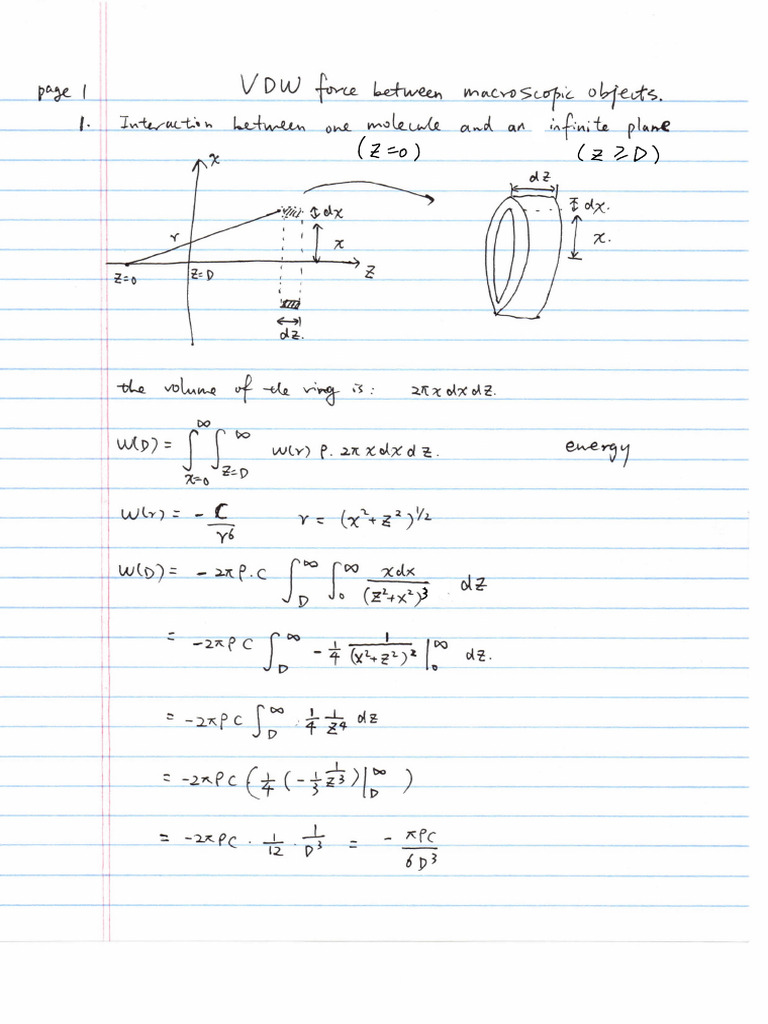 page 1 VDW force between macroscopic objects.
1. Interaction between one molecule and an infinite plane
(z=0) (z ≥ D)
x
dz
dx
dx.
r
x
x.
z=0
z=D
z
dz.
the volume of the ring is: 2πx dx dz.
W(D) = ∫_{x=0}^{∞} ∫_{z=D}^{∞} w(r) ρ. 2πx dx dz. energy
w(r) = - C/r^6 r = (x²+z²)^{1/2}
W(D) = -2πρ.C ∫_D^∞ ∫_0^∞ x dx/(z²+x²)^3 dz
= -2πρC ∫_D^∞ -1/4 1/(x²+z²)² |_0^∞ dz.
= -2πρC ∫_D^∞ · 1/4 1/z^4 dz
= -2πρC (1/4 (-1/3 1/z^3) |_D^∞ )
= -2πρC · 1/12 · 1/D^3 = - πρC/6D^3